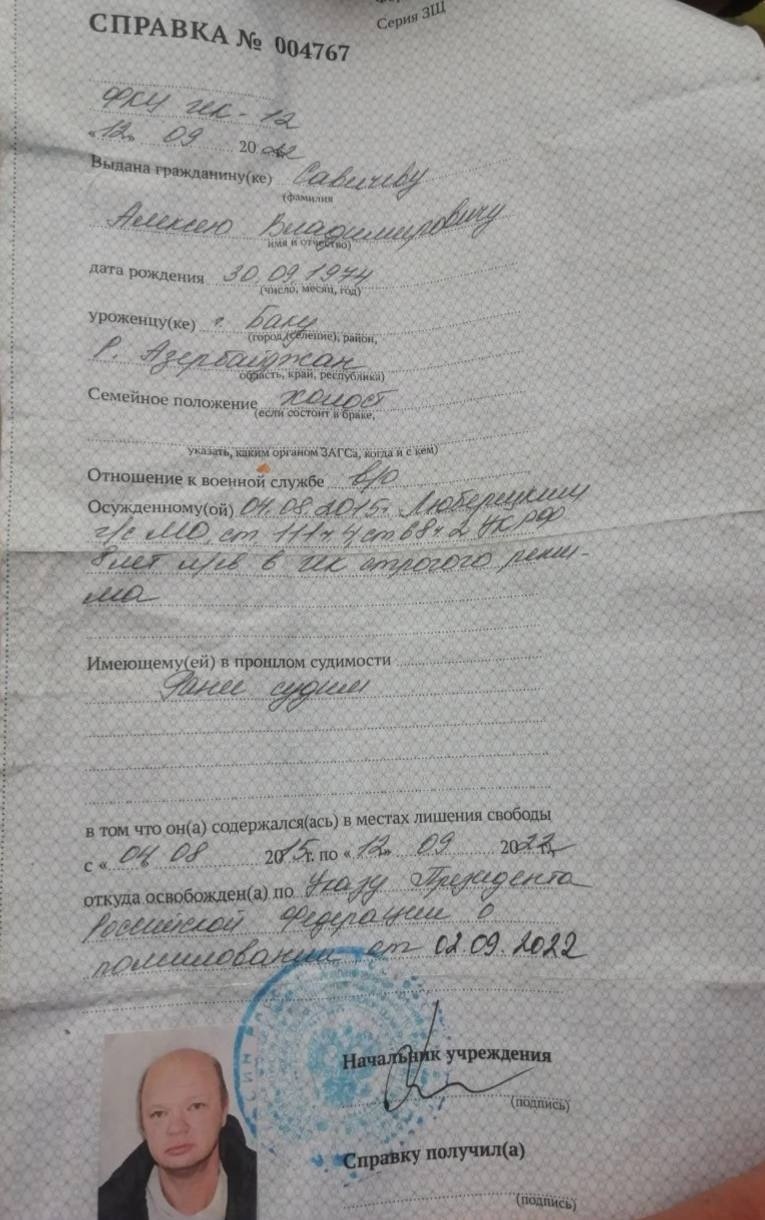 Серия ЗЩ
СПРАВКА № 004767
ФКУ ИК-12
«12» 09 2022
Выдана гражданину(ке) Савичеву
(фамилия
Алексею Владимировичу
имя и отчество)
дата рождения 30.09.1974
(число, месяц, год)
уроженцу(ке) г. Баку
(город (селение), район,
Р. Азербайджан
область, край, республика)
Семейное положение холост
(если состоит в браке,
указать, каким органом ЗАГСа, когда и с кем)
Отношение к военной службе в/о
Осужденному(ой) 04.08.2015г. Люберецким
г/с МО, ст. 111 ч 4 ст 68 ч 2 УК РФ
8 лет л/св в ИК строгого режи-
ма
Имеющему(ей) в прошлом судимости
Ранее судим
в том что он(а) содержался(ась) в местах лишения свободы
с « 04 08 2015г. по «12» 09 2022г.
откуда освобожден(а) по Указу Президента
Российской Федерации о
помиловании от 02.09.2022
Начальник учреждения
(подпись)
Справку получил(а)
(подпись)